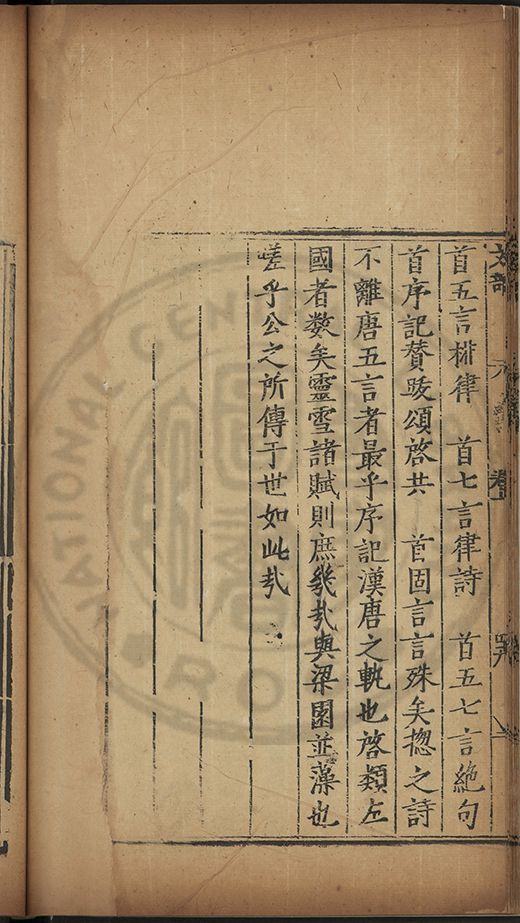 首五言排律　首七言律詩　首五七言絶句
首序記賛跋頌啓共　首固言言殊矣揔之詩
不離唐五言者最乎序記漢唐之軌也啓類左
國者数矣靈雪諸賦則庶幾㢤與梁園並藻也
嗟乎公之所傳于世如此㢤